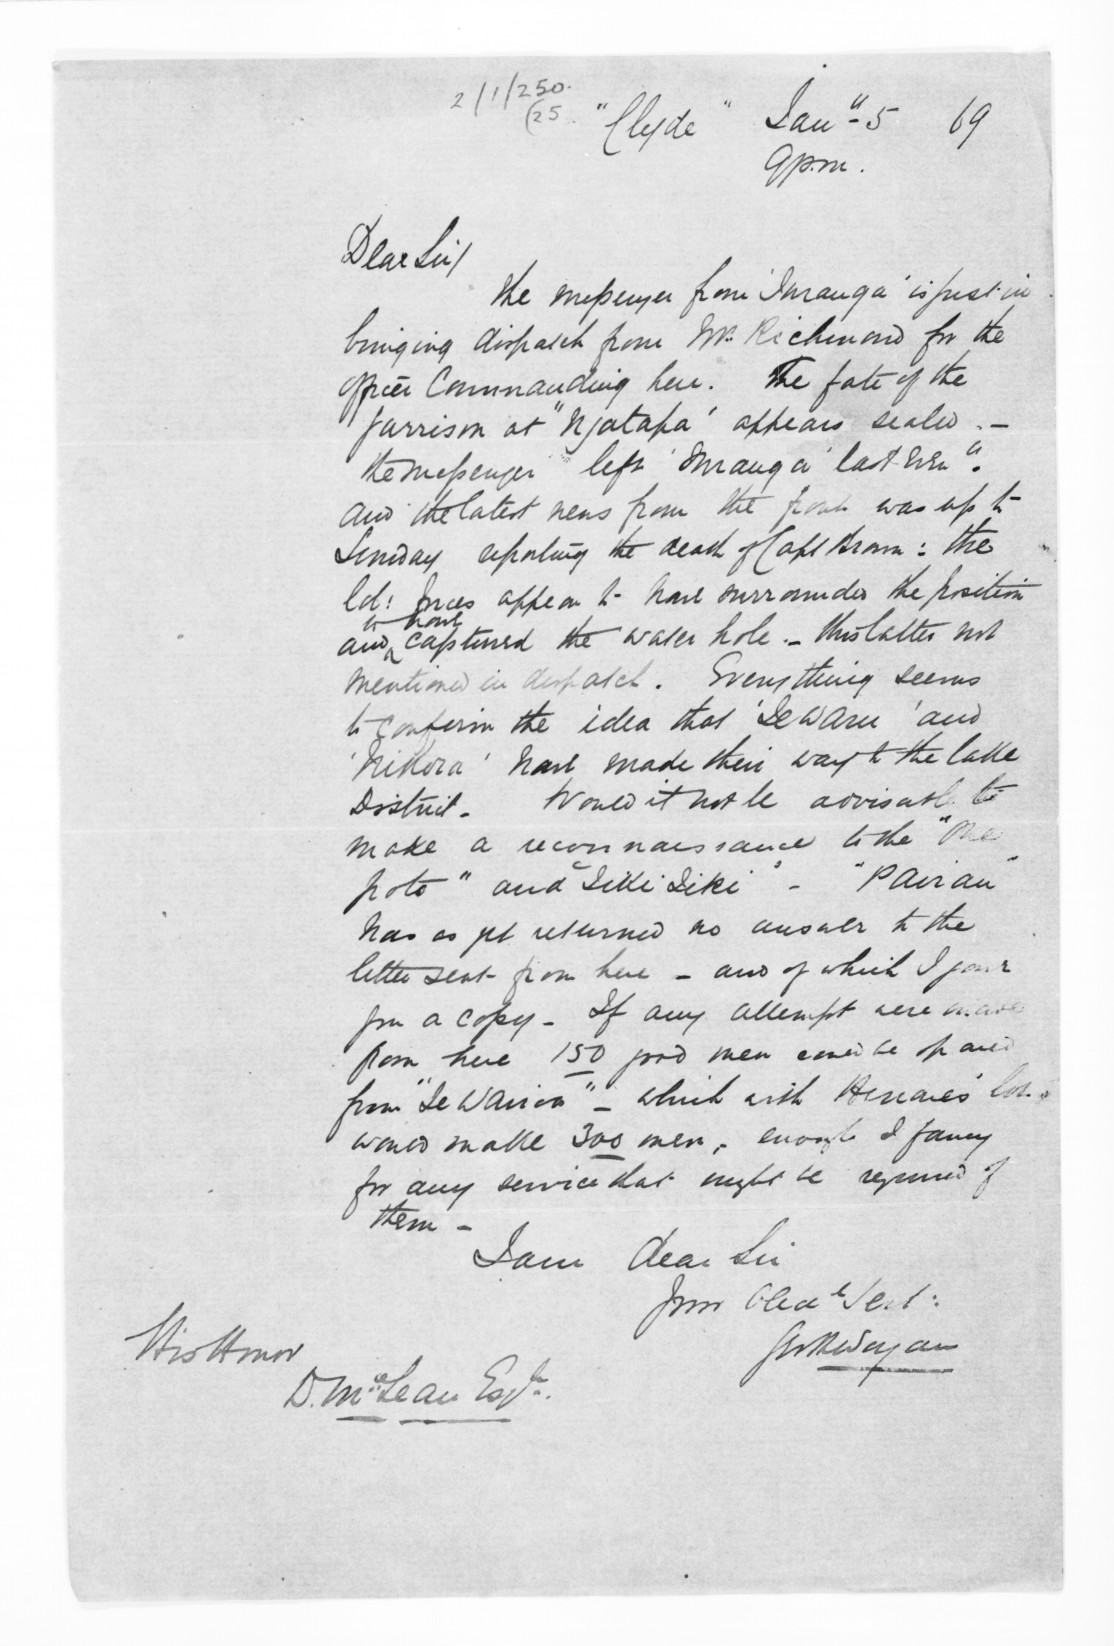 2/1/250.
(25.
"Clyde" Jany 5 69
9 p.m.
Dear Sir/
The messenger from 'Turanga' is just in
bringing dispatch from Mr. Richmond for the
Officer Commanding here. The fate of the
garrison at "Ngatapa' appears sealed. –
the messenger left 'Turanga' last Even".
and the latest news from the front was up to
Sunday reporting the death of Capt Brown: the
Col: forces appear to have surrounded the position
to have
and captured the water hole. – this latter not
mentioned in dispatch. Everything seems
to confirm the idea that 'Te Waru' and
'Nikora' have made their way to the lake
District – Would it not be advisable to
make a reconnaissance to the "One
poto" and "Tiki Tiki" – "Pairau"
has as yet returned no answer to the
letter sent from here – and of which I gave
you a copy – If any attempt were made
from here 150 good men could be spared
from "Te Wairoa" – which with Henare's lot
would make 300 men, enough I fancy
for any service that might be required of
them –
I am dear Sir
Your Obedt Servt:
His Honor
D. McLean Esqr.